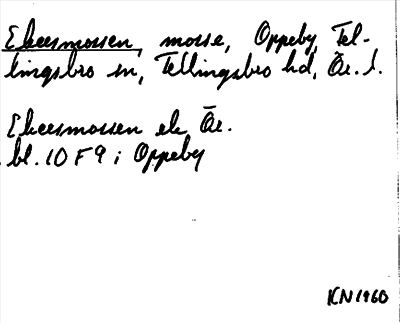 Ekeesmossen, mosse, Oppeby, Tel-
lingsbro sn, Tellingsbro hd, Ör. l.
Ekeesmossen ek Ör.
bl. 10 F 9 i Oppeby
KN 1960